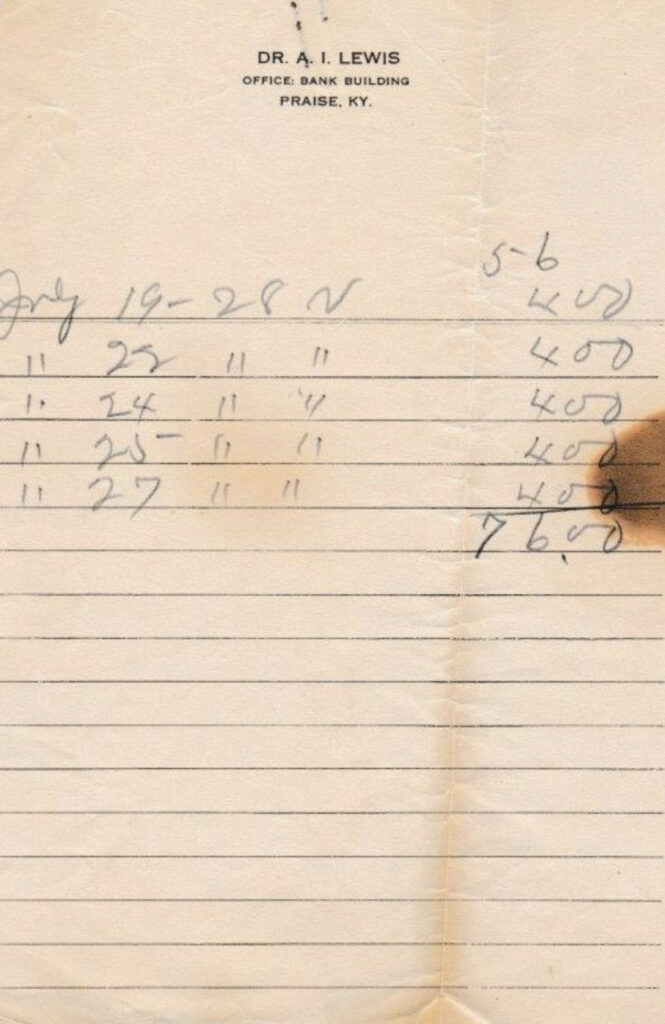 DR. A. I. LEWIS
OFFICE: BANK BUILDING
PRAISE, KY.
56
July 19-28 V 400
" 22 " " 400
" 24 " " 400
" 25 " " 400
" 27 " " 400
76.00